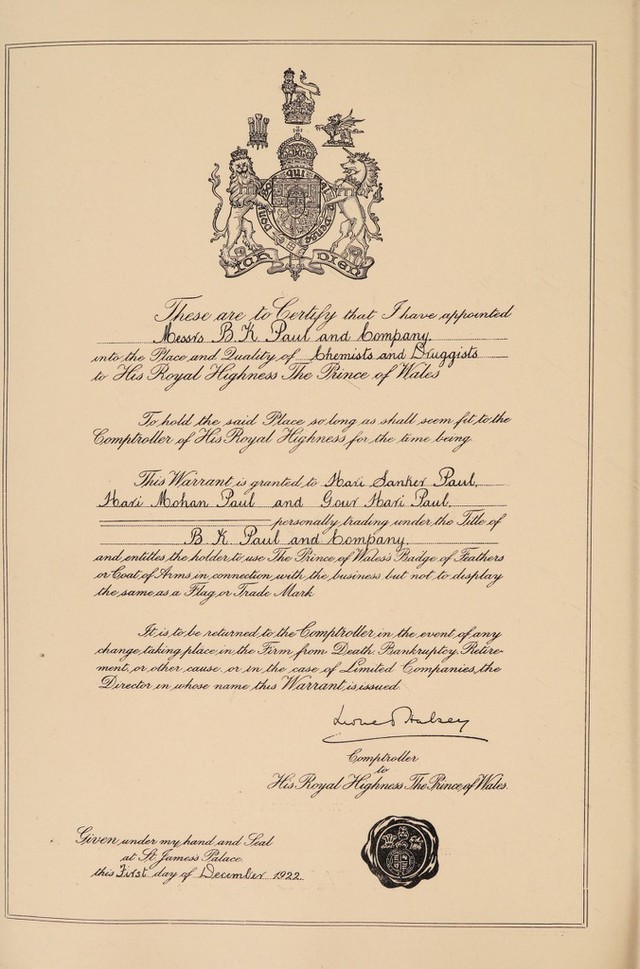 QUI
ICH DIEN
These are to Certify that I have appointed
Messrs B. K. Paul and Company.
into the Place and Quality of Chemists and Druggists
to His Royal Highness The Prince of Wales
To hold the said Place so long as shall seem fit to the
Comptroller of His Royal Highness for the time being
This Warrant is granted to Hari Sanker Paul,
Hari Mohan Paul and Gour Hari Paul,
personally trading under the Title of
B. K. Paul and Company.
and entitles the holder to use The Prince of Wales's Badge of Feathers
or Coat of Arms in connection with the business but not to display
the same as a Flag or Trade Mark
It is to be returned to the Comptroller in the event of any
change taking place in the Firm from Death Bankruptcy Retire-
ment, or other cause, or in the case of Limited Companies, the
Director in whose name this Warrant is issued
Lionel Halsey
Comptroller
to
His Royal Highness The Prince of Wales.
Given under my hand and Seal
at St James's Palace
this First day of December 1922.